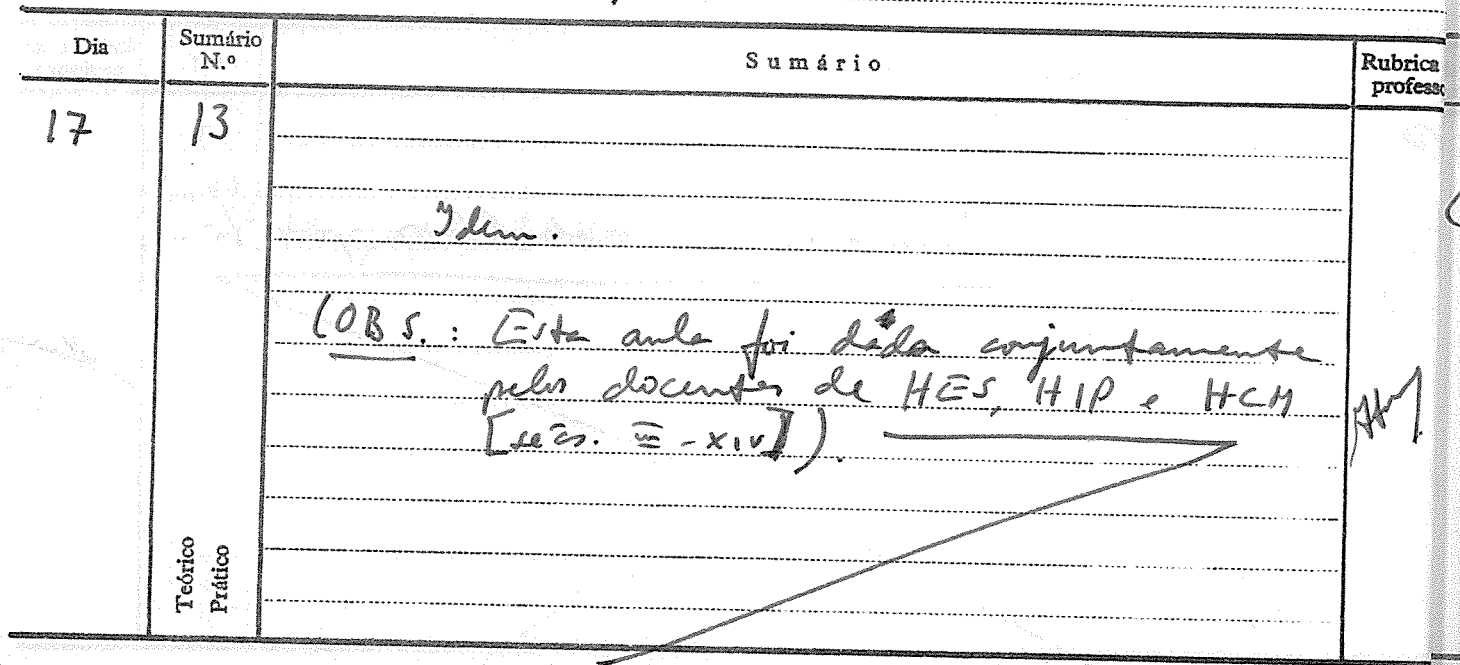 Dia
Sumário N.º
Sumário
Rubrica
profess
17
13
Idem.
(OBS.: Esta aula foi dada conjuntamente
pelos docentes de HES, HIP e HCM
[sécs. III - XIV]).
Teórico
Prático